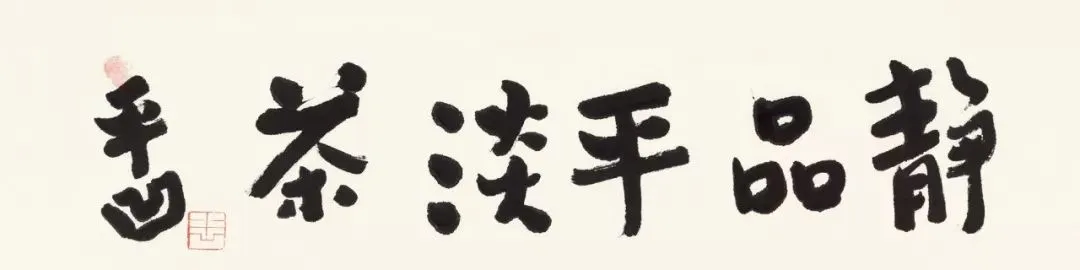 静品平淡茶
平凹